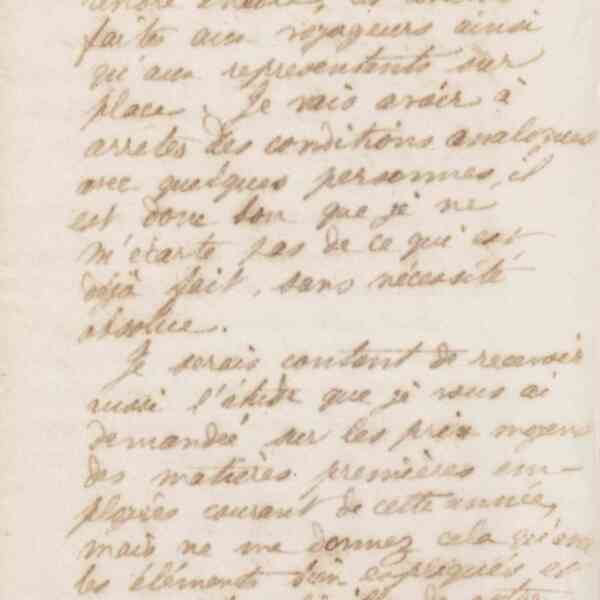 faite aux voyageurs ainsi
qu'aux représentants sur
place. Je vais avoir à
arrêter des conditions analogues
avec quelques personnes, il
est donc bon que je ne
m'écarte pas de ce qui est
déjà fait, sans nécessité
absolue.
Je serais content de recevoir
aussi l'étude que je vous ai
demandée sur les prix moyens
des matières premières em-
ployées courant de cette année,
mais ne me donnez cela qu'avec
les éléments bien expliqués et